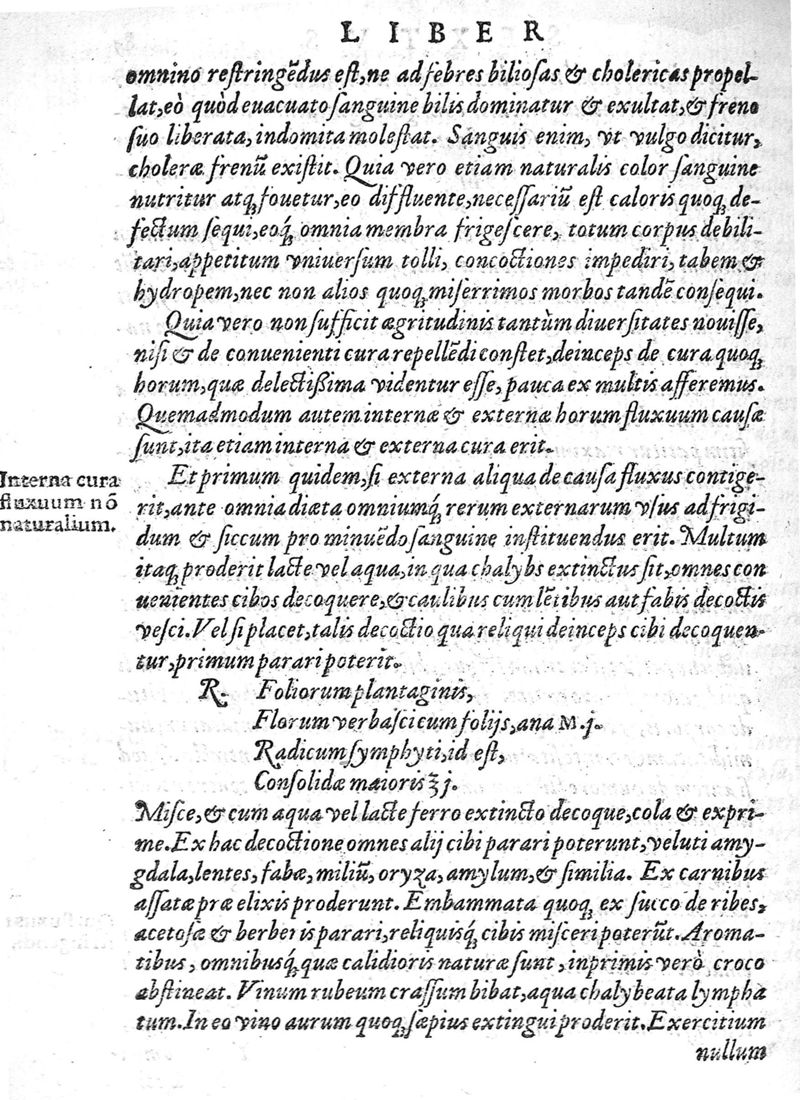 LIBER
omnino restringẽdus est, ne ad febres biliosas & cholericas propel-
lat, eò quòd euacuato sanguine bilis dominatur & exultat, & freno
suo liberata, indomita molestat. Sanguis enim, vt vulgo dicitur,
choleræ frenũ existit. Quia vero etiam naturalis color sanguine
nutritur atq; fouetur, eo diffluente, necessariũ est caloris quoq; de-
fectum sequi, eoq́; omnia membra frigescere, totum corpus debili-
tari, appetitum vniuersum tolli, concoctiones impediri, tabem &
hydropem, nec non alios quoq; miserrimos morbos tandẽ consequi.
Quia vero non sufficit ægritudinis tantùm diuersitates nouisse,
nisi & de conuenienti cura repellẽdi constet, deinceps de cura quoq;
horum, quæ delectißima videntur esse, pauca ex multis afferemus.
Quemadmodum autem internæ & externæ horum fluxuum causæ
sunt, ita etiam interna & externa cura erit.
Interna cura
fluxuum nõ
naturalium.
Et primum quidem, si externa aliqua de causa fluxus contige-
rit, ante omnia diæta omniumq́; rerum externarum vsus ad frigi-
dum & siccum pro minuẽdo sanguine instituendus erit. Multum
itaq; proderit lacte vel aqua, in qua chalybs extinctus sit, omnes con
uenientes cibos decoquere, & caulibus cum lẽtibus aut fabis decoctis
vesci. Vel si placet, talis decoctio qua reliqui deinceps cibi decoquen-
tur, primum parari poterit.
℞. Foliorum plantaginis,
Florum verbasci cum folijs, ana M. j.
Radicum symphyti, id est,
Consolidæ maioris ʒ j.
Misce, & cum aqua vel lacte ferro extincto decoque, cola & expri-
me. Ex hac decoctione omnes alij cibi parari poterunt, veluti amy-
gdala, lentes, fabæ, miliũ, oryza, amylum, & similia. Ex carnibus
assatæ præ elixis proderunt. Embammata quoq; ex succo de ribes,
acetosæ & berberis parari, reliquisq́; cibis misceri poterũt. Aroma-
tibus, omnibusq́; quæ calidioris naturæ sunt, inprimis verò croco
abstineat. Vinum rubeum crassum bibat, aqua chalybeata lympha
tum. In eo vino aurum quoq; sæpius extingui proderit. Exercitium
nullum